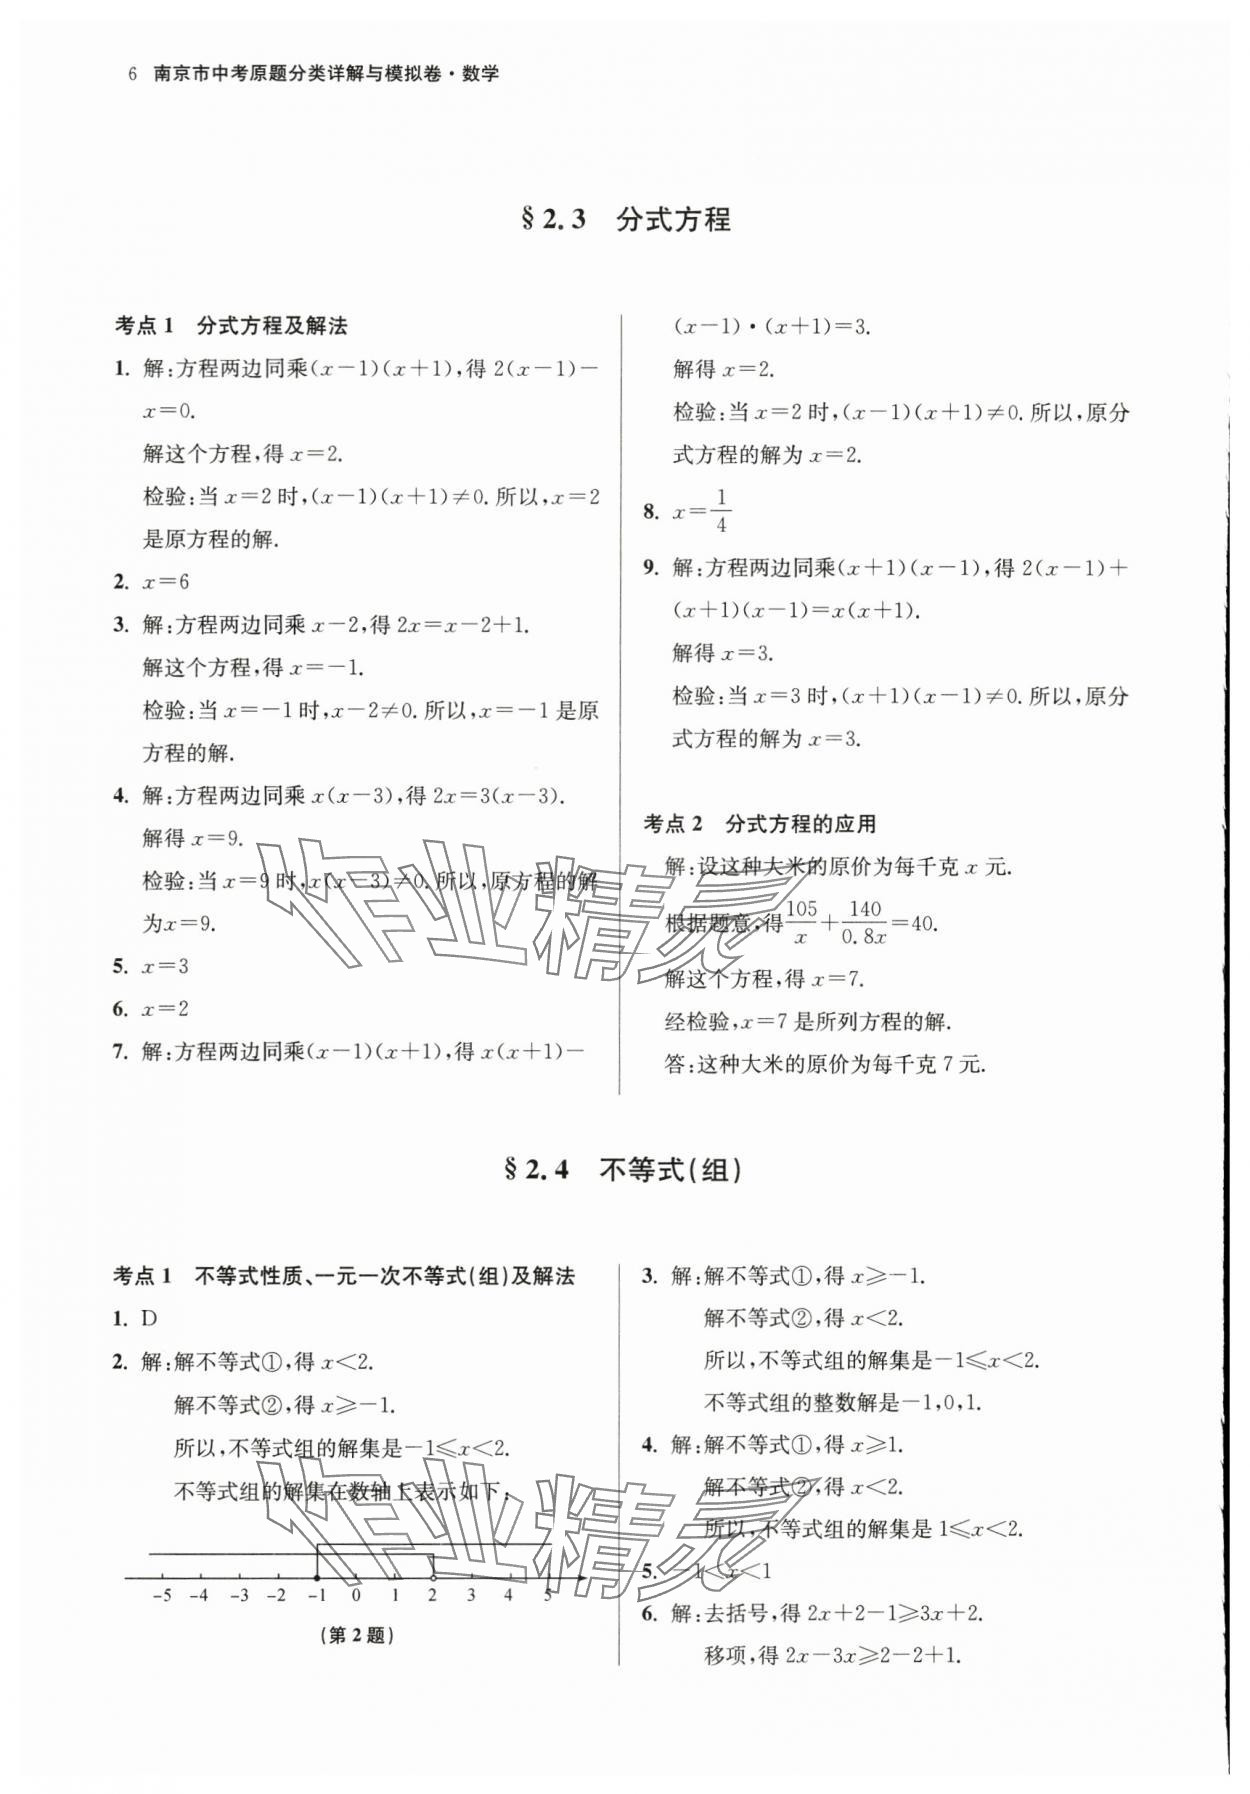 6 南京市中考原题分类详解与模拟卷·数学
§2.3 分式方程
考点1 分式方程及解法
1. 解:方程两边同乘(x－1)(x＋1),得2(x－1)－
x＝0.
解这个方程,得x＝2.
检验:当x＝2时,(x－1)(x＋1)≠0.所以,x＝2
是原方程的解.
2. x＝6
3. 解:方程两边同乘x－2,得2x＝x－2＋1.
解这个方程,得x＝－1.
检验:当x＝－1时,x－2≠0.所以,x＝－1是原
方程的解.
4. 解:方程两边同乘x(x－3),得2x＝3(x－3).
解得x＝9.
检验:当x＝9时,x(x－3)≠0.所以,原方程的解
为x＝9.
5. x＝3
6. x＝2
7. 解:方程两边同乘(x－1)(x＋1),得x(x＋1)－
(x－1)·(x＋1)＝3.
解得x＝2.
检验:当x＝2时,(x－1)(x＋1)≠0.所以,原分
式方程的解为x＝2.
8. x＝1/4
9. 解:方程两边同乘(x＋1)(x－1),得2(x－1)＋
(x＋1)(x－1)＝x(x＋1).
解得x＝3.
检验:当x＝3时,(x＋1)(x－1)≠0.所以,原分
式方程的解为x＝3.
考点2 分式方程的应用
解:设这种大米的原价为每千克x元.
根据题意,得105/x＋140/0.8x＝40.
解这个方程,得x＝7.
经检验,x＝7是所列方程的解.
答:这种大米的原价为每千克7元.
作业精灵
§2.4 不等式(组)
考点1 不等式性质、一元一次不等式(组)及解法
1. D
2. 解:解不等式①,得x＜2.
解不等式②,得x≥－1.
所以,不等式组的解集是－1≤x＜2.
不等式组的解集在数轴上表示如下:
-5 -4 -3 -2 -1 0 1 2 3 4 5
(第2题)
3. 解:解不等式①,得x≥－1.
解不等式②,得x＜2.
所以,不等式组的解集是－1≤x＜2.
不等式组的整数解是－1,0,1.
4. 解:解不等式①,得x≥1.
解不等式②,得x＜2.
所以,不等式组的解集是1≤x＜2.
5. －1＜x＜1
6. 解:去括号,得2x＋2－1≥3x＋2.
移项,得2x－3x≥2－2＋1.
作业精灵